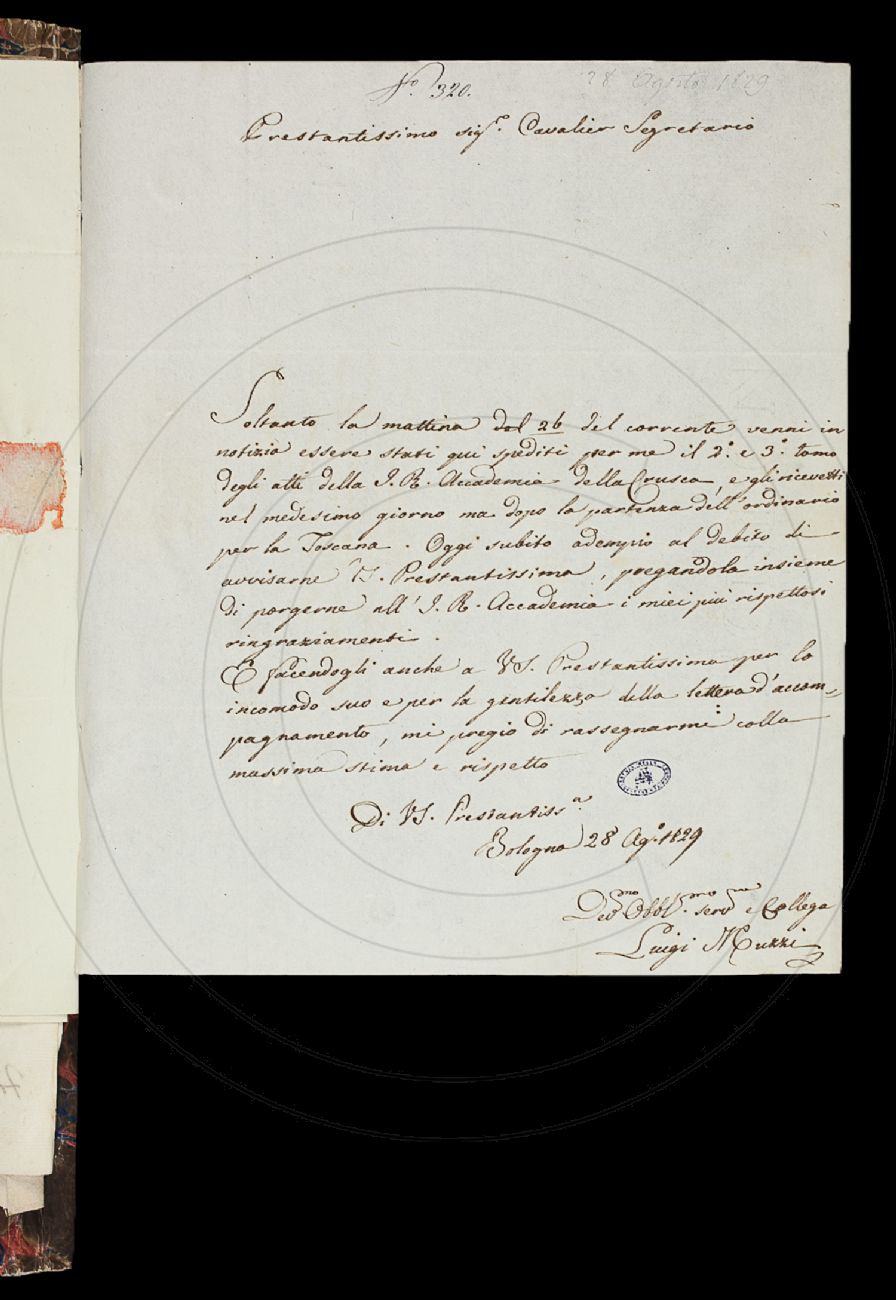 N.o 320.
28 Agosto 1829
Prestantissimo sig.r Cavalier Segretario
Soltanto la mattina del 26 del corrente venni in
notizia essere stati qui spediti per me il 2.o e 3.o tomo
degli atti della I. R. Accademia della Crusca, e gli ricevetti
nel medesimo giorno ma dopo la partenza dell'ordinario
per la Toscana. Oggi subito adempio al debito di
avvisarne VS. Prestantissima, pregandola insieme
di porgerne all'I. R. Accademia i miei più rispettosi
ringraziamenti.
E facendogli anche a VS. Prestantissima per lo
incomodo suo e per la gentilezza della lettera d'accom-
pagnamento, mi pregio di rassegnarmi colla
massima stima e rispetto
Di VS. Prestantiss.a
Bologna 28 Ag.o 1829
Dev.mo Obbl.mo serv.re e Collega
Luigi Muzzi